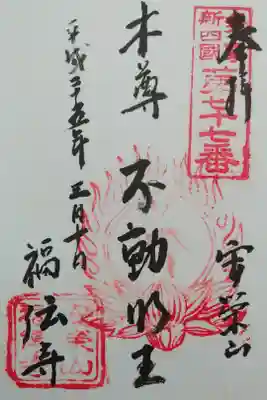 奉拝
新四國
第七十七番
宝栄山
本尊 不動明王
平成二十五年 三月十日
福伝寺